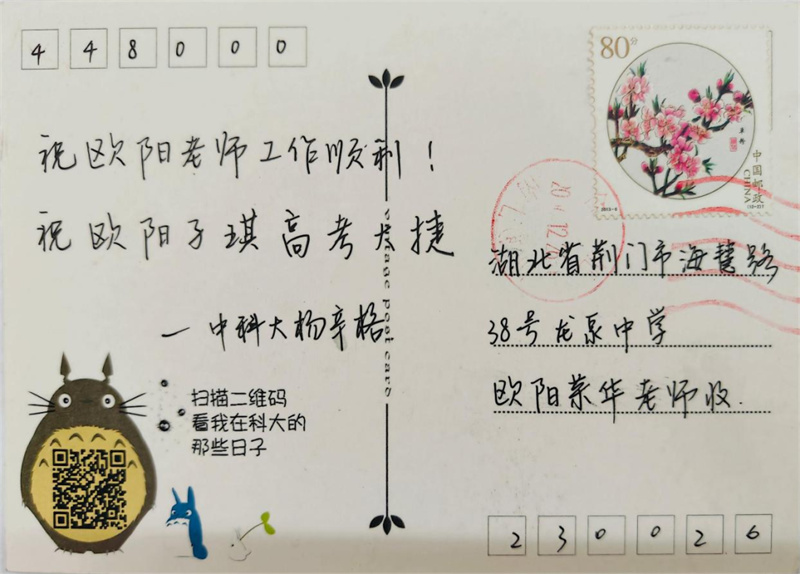 448000
80分
中国邮政
CHINA
祝欧阳老师工作顺利！
祝欧阳子琪高考大捷
—中科大杨辛格
湖北省荆门市海慧路
38号龙泉中学
欧阳荣华老师收.
扫描二维码
看我在科大的
那些日子
230026